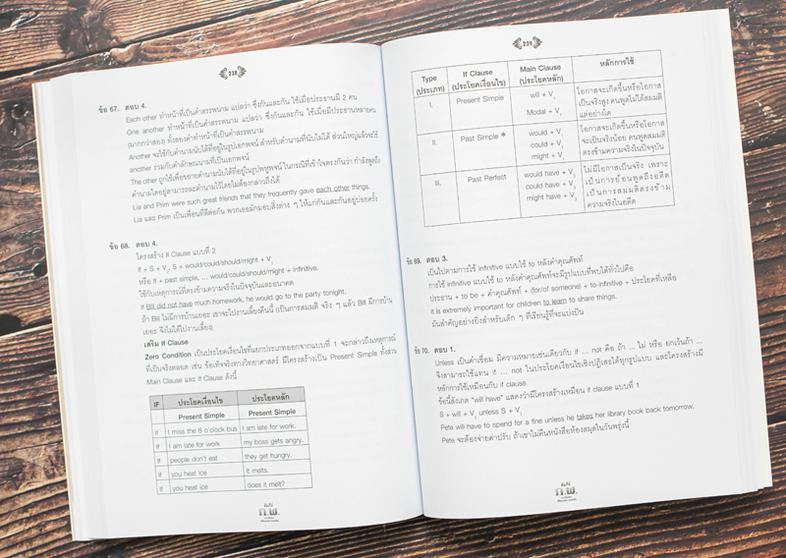 238
ข้อ 67. ตอบ 4.
Each other ทำหน้าที่เป็นคำสรรพนาม แปลว่า ซึ่งกันและกัน ใช้เมื่อประธานมี 2 คน
One another ทำหน้าที่เป็นคำสรรพนาม แปลว่า ซึ่งกันและกัน ใช้เมื่อมีประธานหลายคน
(มากกว่าสอง) ทั้งสองคำทำหน้าที่เป็นคำสรรพนาม
Another จะใช้กับคำนามนับได้ที่อยู่ในรูปเอกพจน์ สำหรับคำนามที่นับไม่ได้ ส่วนใหญ่แล้วจะใช้
another ร่วมกับคำลักษณนามที่เป็นเอกพจน์
The other ถูกใช้เพื่อขยายคำนามนับได้ที่อยู่ในรูปพหูพจน์ ในกรณีที่เข้าใจตรงกันว่า กำลังพูดถึง
คำนามใดอยู่สามารถละคำนามไว้โดยไม่ต้องกล่าวถึงได้
Lia and Prim were such great friends that they frequently gave each other things.
Lia และ Prim เป็นเพื่อนที่ดีต่อกัน พวกเธอมักมอบสิ่งต่าง ๆ ให้แก่กันและกันอยู่บ่อยครั้ง
ข้อ 68. ตอบ 4.
โครงสร้าง If Clause แบบที่ 2
If + S + V₂, S + would/could/should/might + V₁
หรือ If + past simple, ... would/could/should/might + infinitive.
ใช้กับเหตุการณ์ที่ตรงข้ามความจริงในปัจจุบันและอนาคต
If Bill did not have much homework, he would go to the party tonight.
ถ้า Bill ไม่มีการบ้านเยอะ เขาจะไปงานเลี้ยงคืนนี้ (เป็นการสมมติ จริง ๆ แล้ว Bill มีการบ้าน
เยอะ จึงไม่ได้ไปงานเลี้ยง)
เสริม If Clause
Zero Condition เป็นประโยคเงื่อนไขที่แยกประเภทออกจากแบบที่ 1 จะกล่าวถึงเหตุการณ์
ที่เป็นจริงตลอด เช่น ข้อเท็จจริงทางวิทยาศาสตร์ มีโครงสร้างเป็น Present Simple ทั้งส่วน
Main Clause และ If Clause ดังนี้
IF ประโยคเงื่อนไข ประโยคหลัก
Present Simple Present Simple
If I miss the 8 o'clock bus I am late for work.
If I am late for work my boss gets angry.
If people don't eat they get hungry.
If you heat ice it melts.
If you heat ice does it melt?
ก.พ.
239
Type (ประเภท) If Clause (ประโยคเงื่อนไข) Main Clause (ประโยคหลัก) หลักการใช้
I. Present Simple will + V₁ โอกาสจะเกิดขึ้นหรือโอกาส
เป็นจริงสูง คนพูดไม่ได้สมมติ
Modal + V₁ แต่อย่างใด
II. Past Simple * would + V₁ โอกาสจะเกิดขึ้นหรือโอกาส
could + V₁ จะเป็นจริงน้อย คนพูดสมมติ
might + V₁ ตรงข้ามความจริงในปัจจุบัน
III. Past Perfect would have + V₃ ไม่มีโอกาสเป็นจริง เพราะ
could have + V₃ เป็นการย้อนพูดถึงอดีต
might have + V₃ เป็นการสมมติตรงข้าม
ความจริงในอดีต
ข้อ 69. ตอบ 3.
เป็นไปตามการใช้ infinitive แบบใช้ to หลังคำคุณศัพท์
การใช้ infinitive แบบใช้ to หลังคำคุณศัพท์จะมีรูปแบบที่พบได้ทั่วไปคือ
ประธาน + to be + คำคุณศัพท์ + (for/of someone) + to-infinitive + ประโยคที่เหลือ
It is extremely important for children to learn to share things.
มันสำคัญอย่างยิ่งสำหรับเด็ก ๆ ที่เรียนรู้ที่จะแบ่งปัน
ข้อ 70. ตอบ 1.
Unless เป็นคำเชื่อม มีความหมายเช่นเดียวกับ if ... not คือ ถ้า ... ไม่ หรือ ยกเว้นถ้า ...
จึงสามารถใช้แทน if ... not ในประโยคเงื่อนไขเชิงปฏิเสธได้ทุกรูปแบบ และโครงสร้างมี
หลักการใช้เหมือนกับ if clause
ข้อนี้สังเกต "will have" แสดงว่ามีโครงสร้างเหมือน if clause แบบที่ 1
S + will + V₁ unless S + V₁
Pete will have to spend for a fine unless he takes her library book back tomorrow.
Pete จะต้องจ่ายค่าปรับ ถ้าเขาไม่คืนหนังสือห้องสมุดในวันพรุ่งนี้
ก.พ.